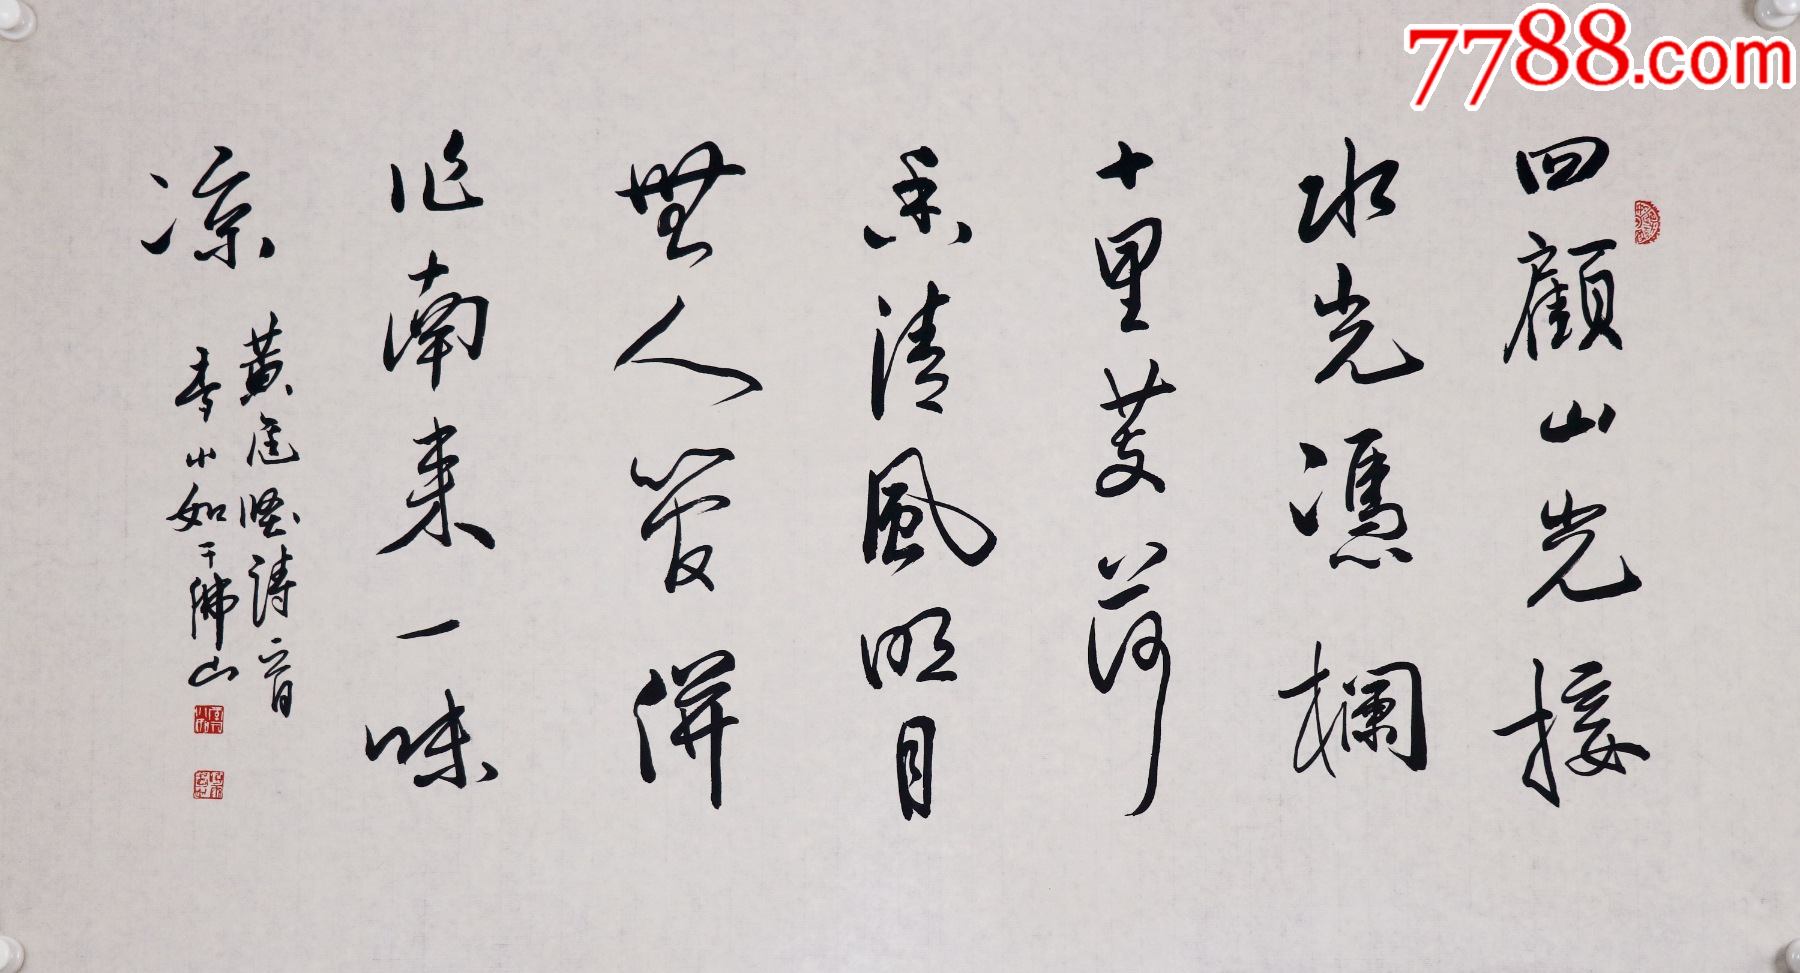 7788.com
四顧山光接
水光憑欄
十里芰荷
香清風明月
無人管併
作南来一味
凉
黄庭堅詩一首
李小如于佛山